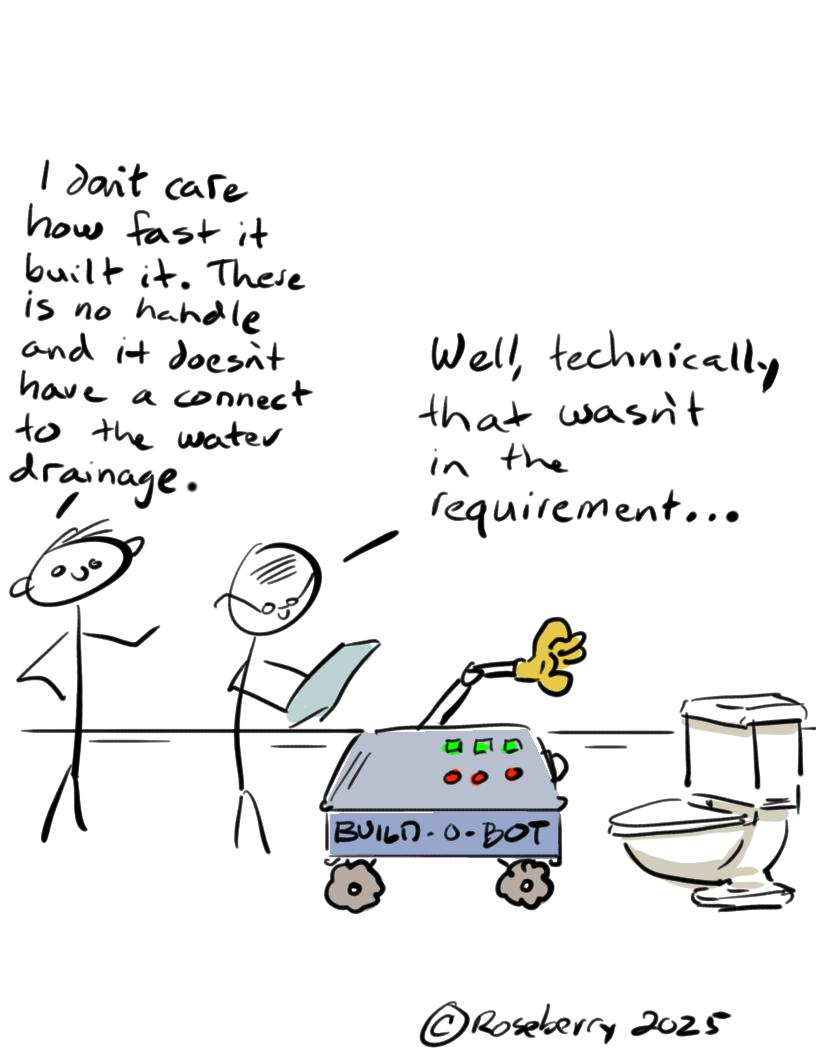 I don't care
how fast it
built it. There
is no handle
and it doesn't
have a connect
to the water
drainage.
Well, technically,
that wasn't
in the
requirement...
BUILD-O-BOT
©Roseberry 2025